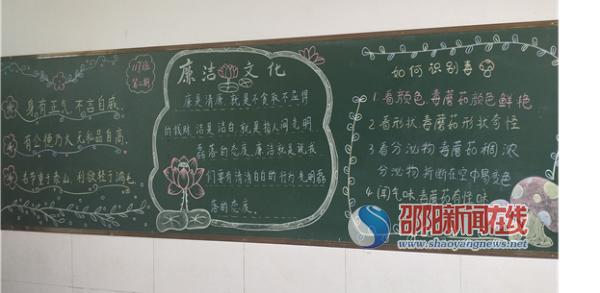 119班
第二期
身有正气 不言自威
有公德乃大 无私品自高
名节重于泰山, 利欲轻于鸿毛
廉洁文化
廉是清廉,就是不贪取不应得
的钱财 洁是洁白 就是指人间光明
磊落的态度. 廉洁就是说我
们要有清清白白的行行光明磊
落的态度.
如何识别毒
1.看颜色.毒蘑菇颜色鲜艳
2.看形状.毒蘑菇形状奇怪
3.看分泌物.毒蘑菇稠浓
分泌物 折断在空中易变色
4.闻气味.毒蘑菇有怪味
邵阳新闻在线
www.shaoyangnews.net